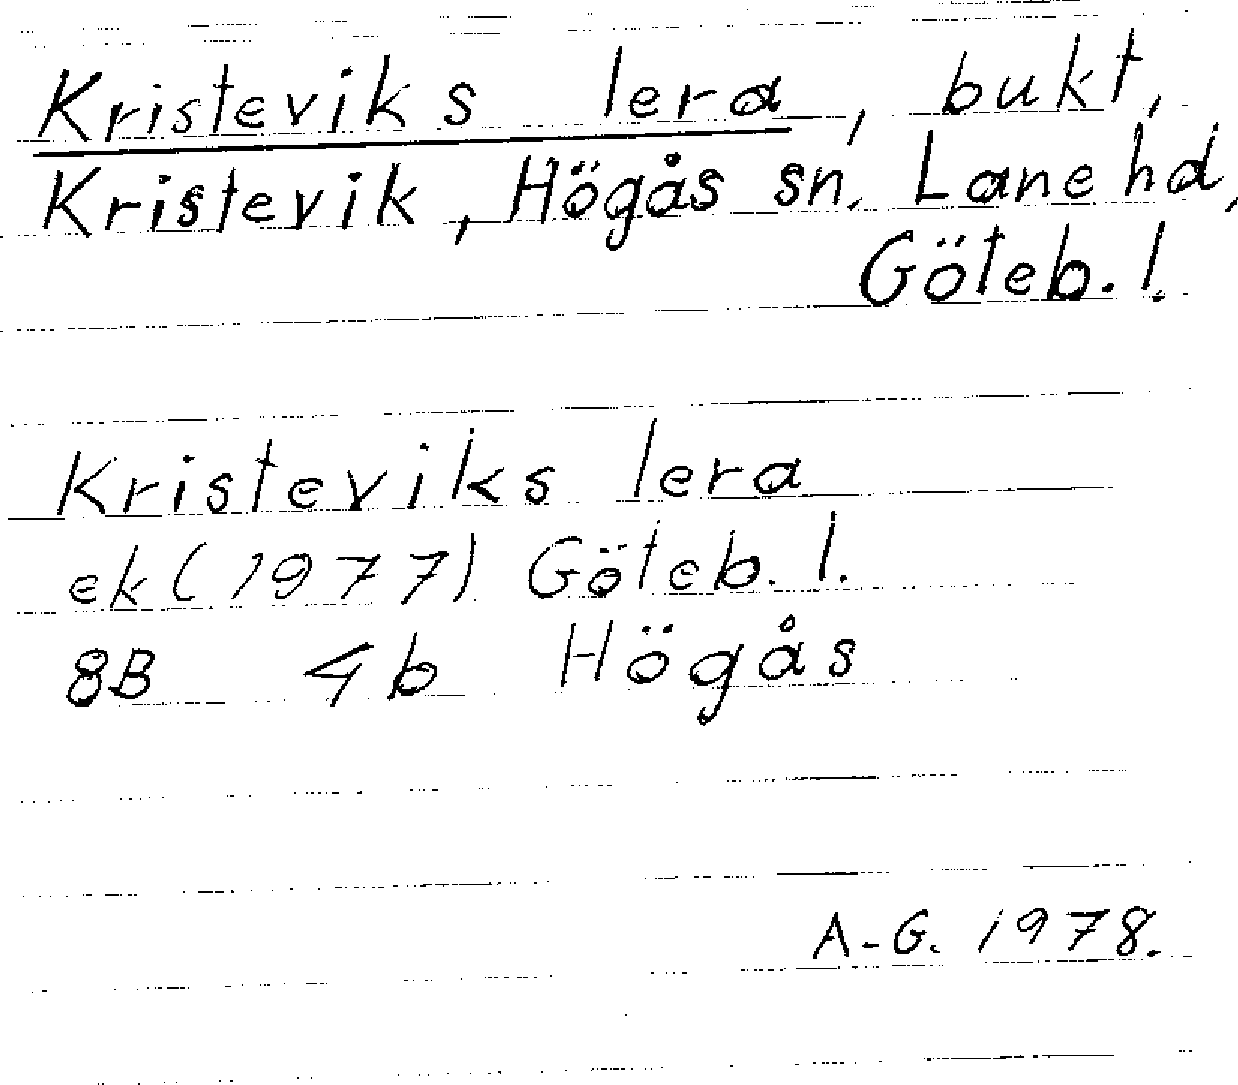 Kristeviks lera, bukt,
Kristevik, Högås sn, Lane hd,
Göteb. l.
Kristeviks lera
ek (1977) Göteb. l.
8B 4b Högås
A-G. 1978.